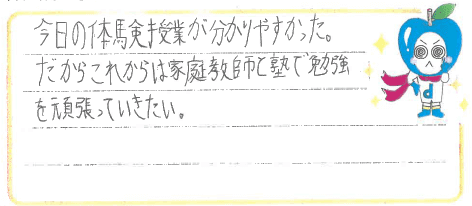 今日の体験授業が分かりやすかった。
だからこれからは家庭教師と塾で勉強
を頑張っていきたい。